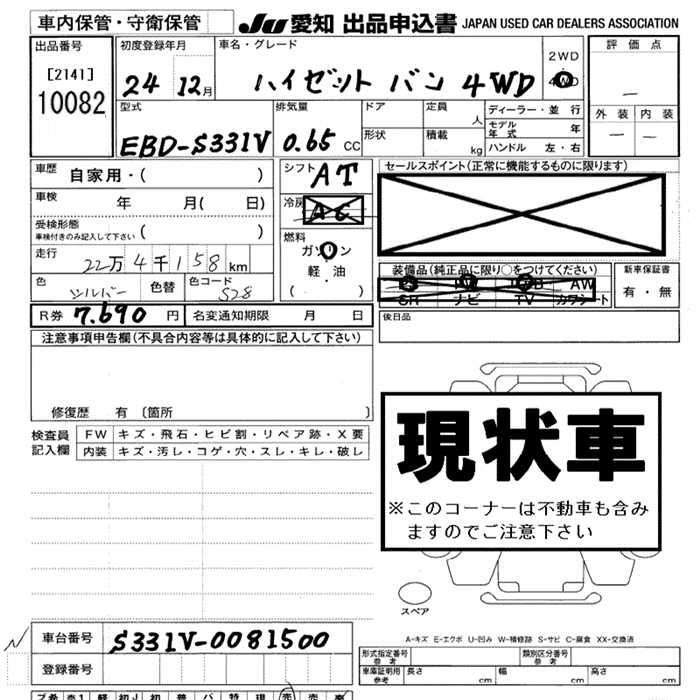 車内保管・守衛保管 JU 愛知 出品申込書 JAPAN USED CAR DEALERS ASSOCIATION
出品番号 [2141] 10082
初度登録年月 24 12月
車名・グレード ハイゼット バン 4WD
2WD 4WD
評価点 —
外装 — 内装 —
型式 EBD-S331V
排気量 0.65 CC
ドア 形状
定員 人
積載 kg
ディーラー・並行
モデル年式 年
ハンドル 左・右
車歴 自家用・( )
シフト AT
セールスポイント(正常に機能するものに限ります)
車検 年 月( 日)
冷房 AC
受検形態 車検付きのみ記入して下さい ( )
燃料 ガソリン 軽・油 ( )
走行 22万4千158km
色 シルバー 色替 色コード S28
装備品(純正品に限り○をつけてください)
AW
SR ナビ TV カワシート
新車保証書 有・無
R券 7.690 円 名変通知期限 月 日
後日品
注意事項申告欄(不具合内容等は具体的に記入して下さい)
修復歴 有 〔箇所 〕
検査員記入欄
FW キズ・飛石・ヒビ割・リペア跡・X要
内装 キズ・汚レ・コゲ・穴・スレ・キレ・破レ
現状車
※このコーナーは不動車も含み
ますのでご注意下さい
スペア
車台番号 S331V-0081500
A-キズ E-エクボ U-凹み W-補修跡 S-サビ C-腐食 XX-交換済
登録番号
形式指定番号 参考 類別区分番号 参考
車庫証明用 参考 長さ cm 幅 cm 高さ cm